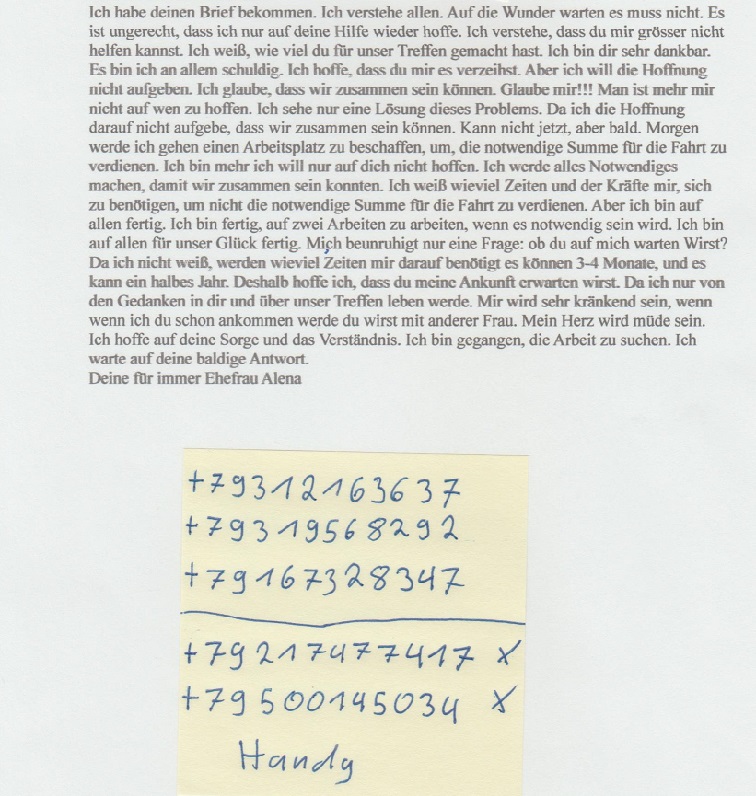 Ich habe deinen Brief bekommen. Ich verstehe allen. Auf die Wunder warten es muss nicht. Es
ist ungerecht, dass ich nur auf deine Hilfe wieder hoffe. Ich verstehe, dass du mir grösser nicht
helfen kannst. Ich weiß, wie viel du für unser Treffen gemacht hast. Ich bin dir sehr dankbar.
Es bin ich an allem schuldig. Ich hoffe, dass du mir es verzeihst. Aber ich will die Hoffnung
nicht aufgeben. Ich glaube, dass wir zusammen sein können. Glaube mir!!! Man ist mehr mir
nicht auf wen zu hoffen. Ich sehe nur eine Lösung dieses Problems. Da ich die Hoffnung
darauf nicht aufgebe, dass wir zusammen sein können. Kann nicht jetzt, aber bald. Morgen
werde ich gehen einen Arbeitsplatz zu beschaffen, um, die notwendige Summe für die Fahrt zu
verdienen. Ich bin mehr ich will nur auf dich nicht hoffen. Ich werde alles Notwendiges
machen, damit wir zusammen sein konnten. Ich weiß wieviel Zeiten und der Kräfte mir, sich
zu benötigen, um nicht die notwendige Summe für die Fahrt zu verdienen. Aber ich bin auf
allen fertig. Ich bin fertig, auf zwei Arbeiten zu arbeiten, wenn es notwendig sein wird. Ich bin
auf allen für unser Glück fertig. Mich beunruhigt nur eine Frage: ob du auf mich warten Wirst?
Da ich nicht weiß, werden wieviel Zeiten mir darauf benötigt es können 3-4 Monate, und es
kann ein halbes Jahr. Deshalb hoffe ich, dass du meine Ankunft erwarten wirst. Da ich nur von
den Gedanken in dir und über unser Treffen leben werde. Mir wird sehr kränkend sein, wenn
wenn ich du schon ankommen werde du wirst mit anderer Frau. Mein Herz wird müde sein.
Ich hoffe auf deine Sorge und das Verständnis. Ich bin gegangen, die Arbeit zu suchen. Ich
warte auf deine baldige Antwort.
Deine für immer Ehefrau Alena
+79312163637
+79319568292
+79167328347
+79217477417 x
+79500145034 x
Handy